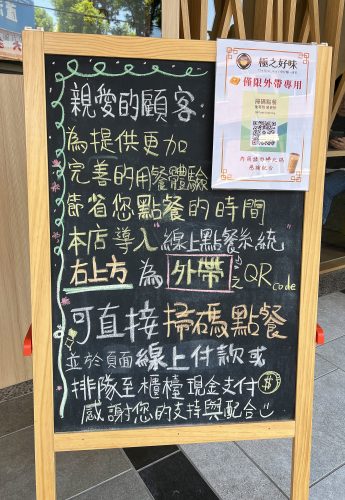 極之好味
僅限外帶專用
掃碼點餐
親愛的顧客
為提供更加
完善的用餐體驗
節省您點餐的時間
本店導入"線上點餐系統
右上方為外帶之QR code
可直接掃碼點餐
並於頁面線上付款或
排隊至櫃檯現金支付$
感謝您的支持與配合